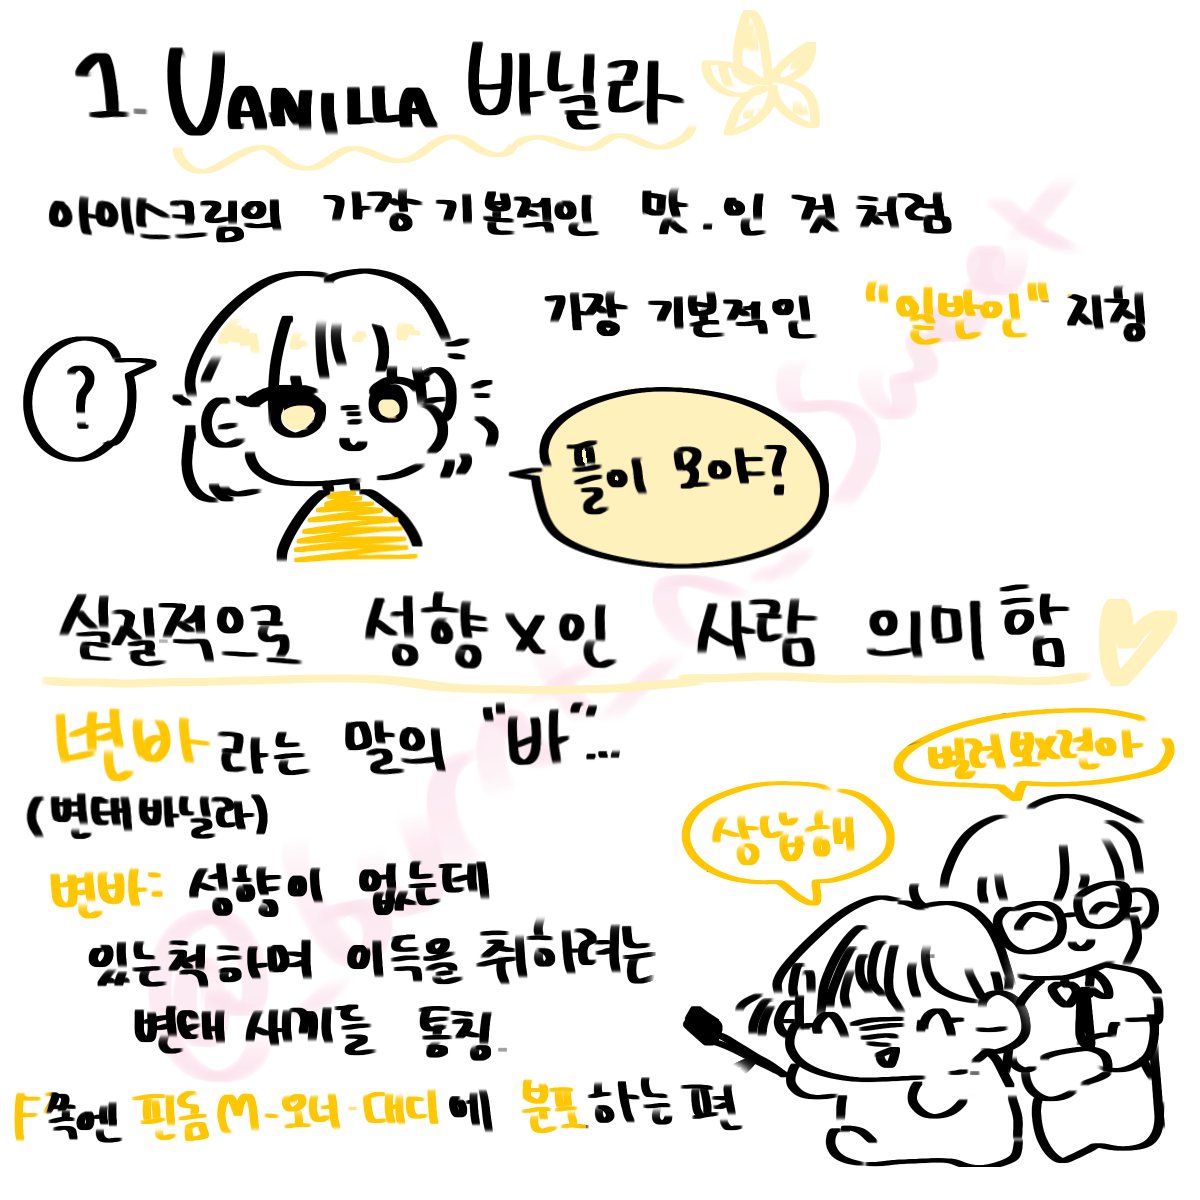 1. VANILLA 바닐라
아이스크림의 가장 기본적인 맛.인 것 처럼
가장 기본적인 "일반인" 지칭
?
플이 모야?
실질적으로 성향x인 사람 의미함
변바라는 말의 "바"...
(변태바닐라)
벌려 보x련아
상납해
변바: 성향이 없는데
있는척하며 이득을 취하려는
변태 새끼들 통칭.
F쪽엔 핀돔 M-오너-대디에 분포하는 편